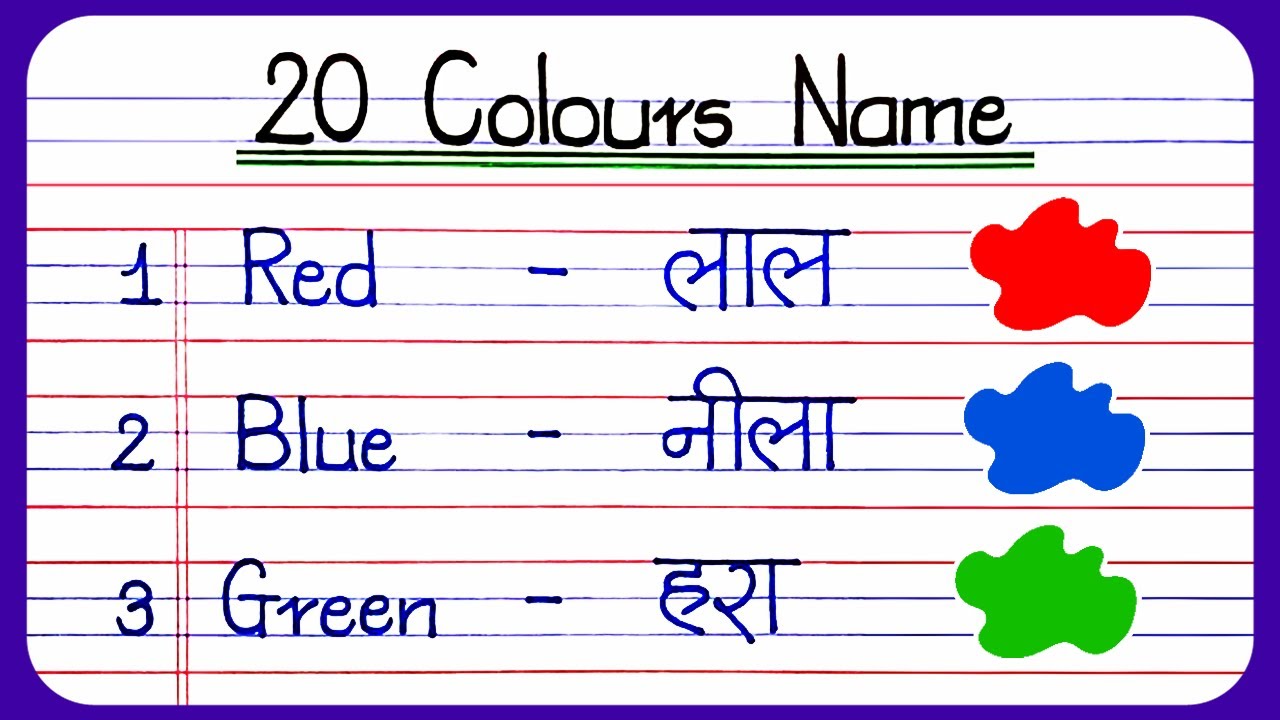 20 Colours Name
1 Red - लाल
2 Blue - नीला
3 Green - हरा